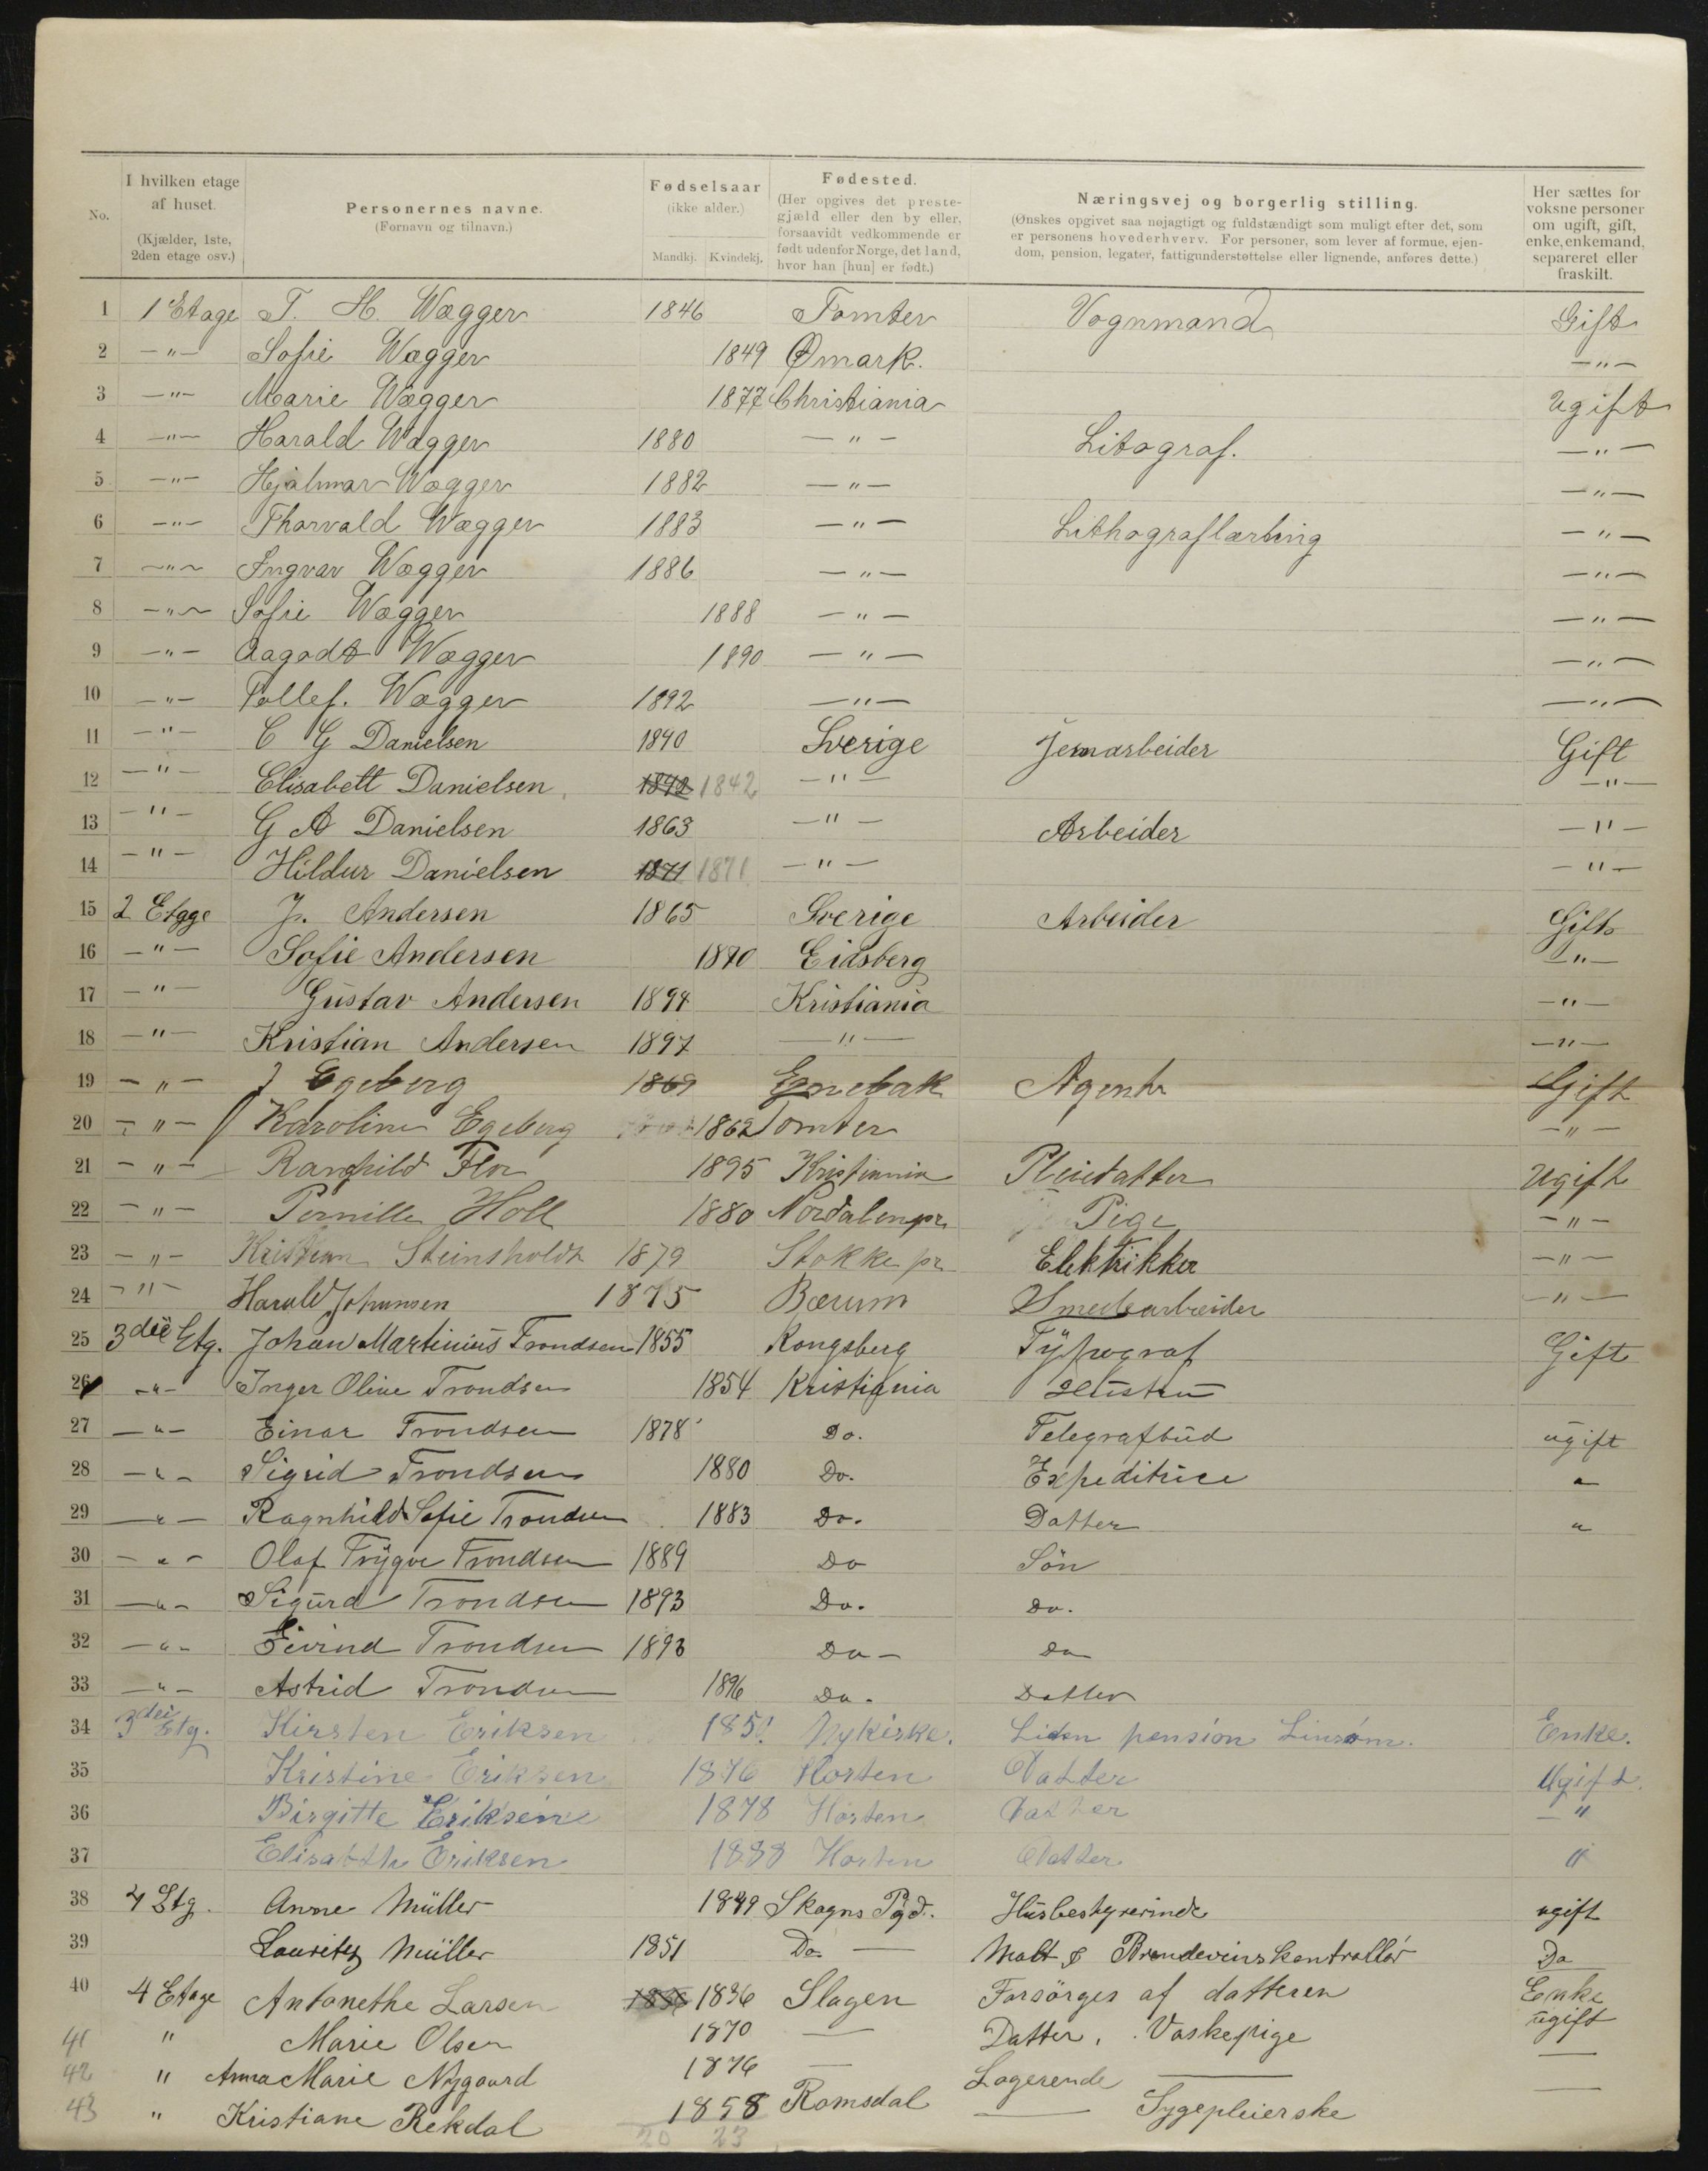 No.
I hvilken etage af huset. (Kjælder, 1ste, 2den etage osv.)
Personernes navne. (Fornavn og tilnavn.)
Fødselsaar (ikke alder.) Mandkj. Kvindekj.
Fødested. (Her opgives det prestegjæld eller den by eller, forsaavidt vedkommende er født udenfor Norge, det land, hvor han [hun] er født.)
Næringsvej og borgerlig stilling. (Ønskes opgivet saa nøjagtigt og fuldstændigt som muligt efter det, som er personens hovederhverv. For personer, som lever af formue, ejendom, pension, legater, fattigunderstøttelse eller lignende, anføres dette.)
Her sættes for voksne personer om ugift, gift, enke, enkemand, separeret eller fraskilt.
1 1 Etage T. H. Wægger 1846 Tomter Vognmand Gift
2 -"- Sofie Wægger 1849 Ømark. -"-
3 -"- Marie Wægger 1877 Christiania Ugift
4 -"- Harald Wægger 1880 -"- Litograf. -"-
5 -"- Hjalmar Wægger 1882 -"- -"-
6 -"- Thorvald Wægger 1883 -"- Lithograflærling -"-
7 -"- Ingvar Wægger 1886 -"- -"-
8 -"- Sofie Wægger 1888 -"- -"-
9 -"- Aagodt Wægger 1890 -"- -"-
10 -"- Tollef. Wægger 1892 -"- -"-
11 -"- C G Danielsen 1840 Sverige Jernarbeider Gift
12 -"- Elisabett Danielsen 1842 1842 -"- -"-
13 -"- G A Danielsen 1863 -"- Arbeider -"-
14 -"- Hildur Danielsen 1871 1871 -"- -"-
15 2 Etage J. Andersen 1865 Sverige Arbeider Gift
16 -"- Sofie Andersen 1870 Eidsberg -"-
17 -"- Gustav Andersen 1894 Kristiania -"-
18 -"- Kristian Andersen 1897 -"- -"-
19 -"- J Egeberg 1869 Enebak Agent Gift
20 -"- Karoline Egeberg 1862 Tomter -"-
21 -"- Ranghild Flor 1895 Kristiania Pleiedatter Ugift
22 -"- Pernille Holl 1880 Nordalen pr. Pige -"-
23 -"- Kristian Steinsholdt 1879 Stokke pr. Elektrikker -"-
24 -"- Harald Johansen 1875 Bærum Smedarbeider -"-
25 3die Etg. Johan Martinius Trondsen 1855 Kongsberg Typograf Gift
26 -"- Inger Oline Trondsen 1854 Kristiania Hustru
27 -"- Einar Trondsen 1878 Do. Telegrafbud ugift
28 -"- Sigrid Trondsen 1880 Do. Expeditrice "
29 -"- Ragnhild Sofie Trondsen 1883 Do. Datter "
30 -"- Olaf Trygve Trondsen 1889 Do Søn
31 -"- Sigurd Trondsen 1893 Do. Do.
32 -"- Eivind Trondsen 1893 Do- Do
33 -"- Astrid Trondsen 1896 Do. Datter
34 3die Etg. Kirsten Eriksen Nykirke. Liden pension Enke.
35 Kristine Eriksen 1876 Horten Datter Ugift.
36 Birgitte Eriksen 1878 Horten Datter -"
37 Elisabeth Eriksen 1888 Horten Datter "
38 4 Etg. Anne Müller 1849 Skogns Pgd. Husbestyrerinde ugift
39 Lauritz Müller 1851 Do. — Malt & Brændevinskontrollør Do
40 4 Etage Antonethe Larsen 1836 1836 Slagen Forsørges af datteren Enke
41 " Marie Olsen 1870 — Datter. Vaskepige ugift
42 " Anna Marie Nygaard 1876 — Logerende — —
43 " Kristiane Rekdal 1858 Romsdal — Sygepleierske —
20 23